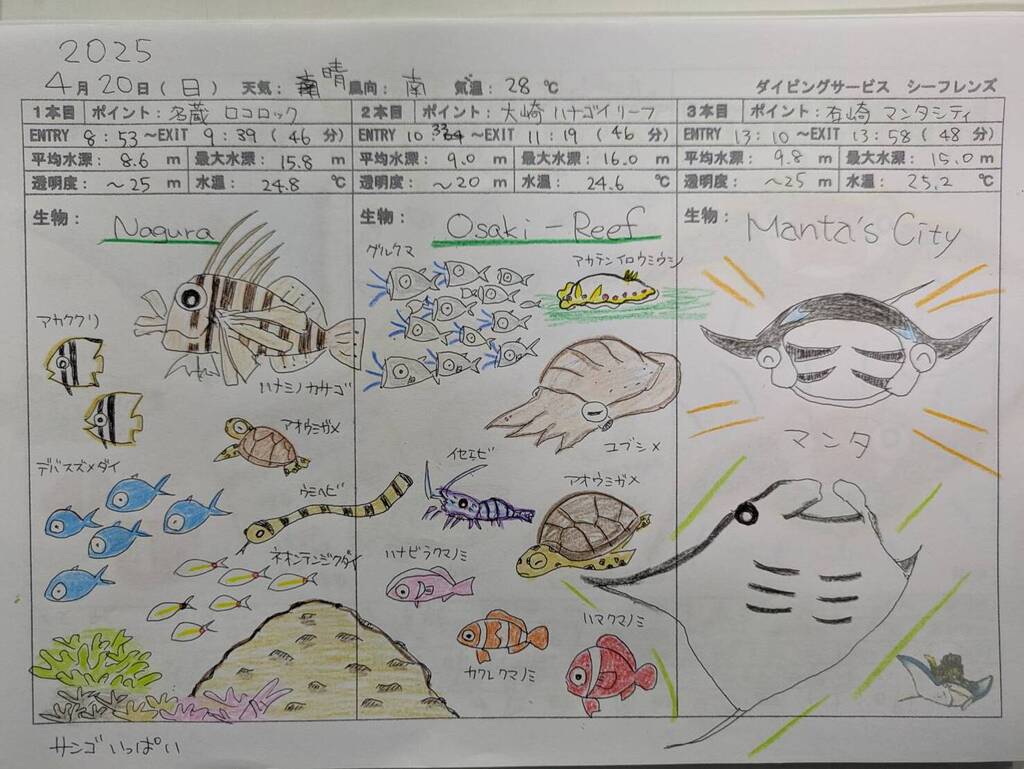 2025
4月20日(日) 天気: 晴 風向: 南 気温: 28 ℃ ダイビングサービス シーフレンズ
1本目 ポイント: 名蔵 ロコロック 2本目 ポイント: 大崎 ハナゴイリーフ 3本目 ポイント: 石崎 マンタシティ
ENTRY 8:53~EXIT 9:39 (46 分) ENTRY 10 33~EXIT 11:19 (46 分) ENTRY 13:10~EXIT 13:58 (48 分)
平均水深: 8.6 m 最大水深: 15.8 m 平均水深: 9.0 m 最大水深: 16.0 m 平均水深: 9.8 m 最大水深: 15.0 m
透明度: ~25 m 水温: 24.8 ℃ 透明度: ~20 m 水温: 24.6 ℃ 透明度: ~25 m 水温: 25.2 ℃
生物: Nagura 生物: Osaki-Reef 生物: Manta's City
グルクマ
アカテンイロウミウシ
アカククリ
ハナミノカサゴ
アオウミガメ
コブシメ
マンタ
デバスズメダイ
ウミヘビ
イセエビ
アオウミガメ
ネオンテンジクダイ
ハナビラクマノミ
カクレクマノミ
ハマクマノミ
サンゴいっぱい